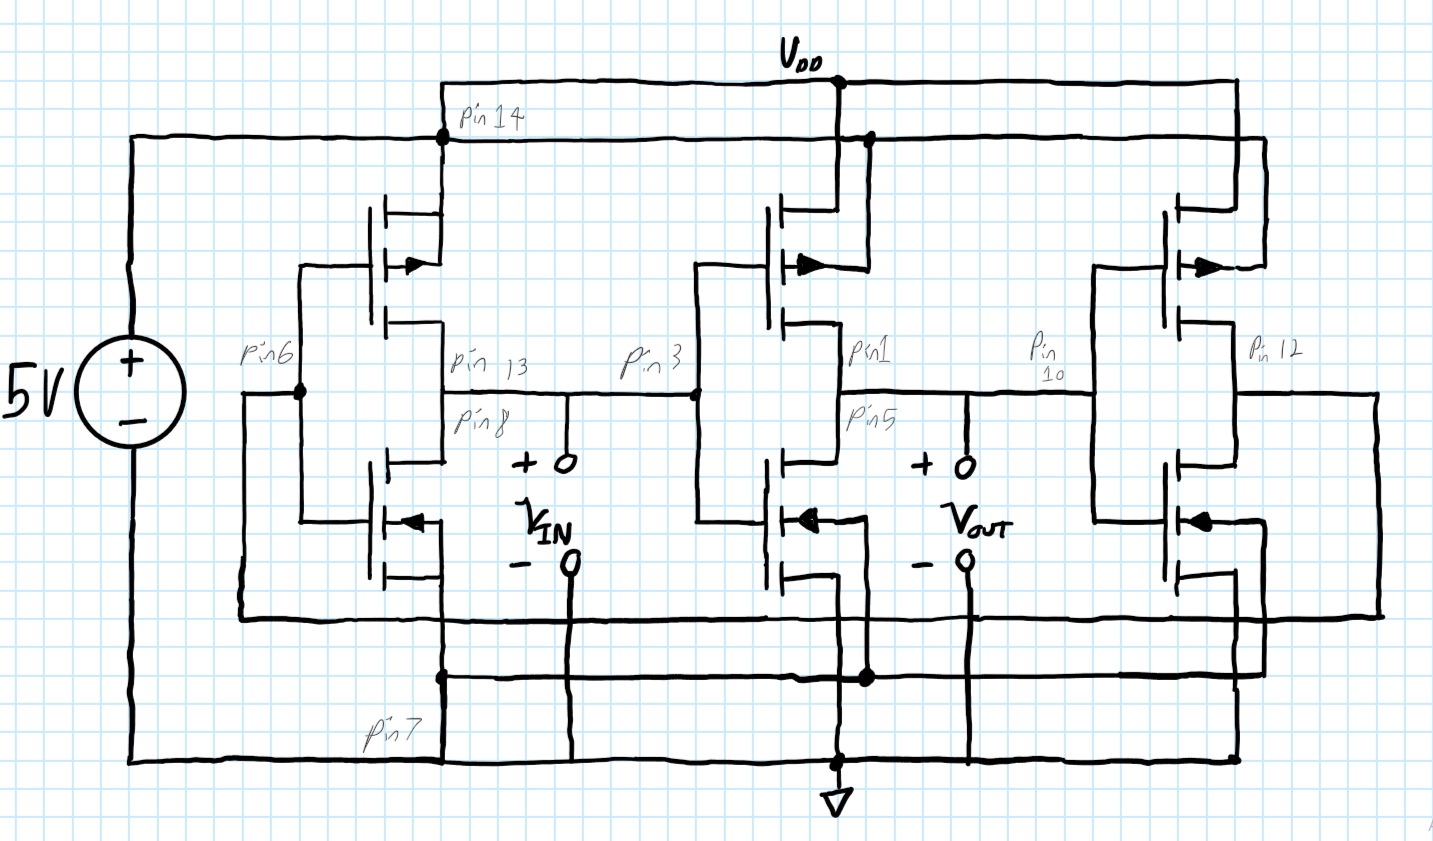 VDD
Pin 14
5V
+
−
Pin6
Pin 13
Pin8
Pin 3
Pin1
Pin5
Pin
10
Pin 12
+
VIN
−
+
VOUT
−
Pin7